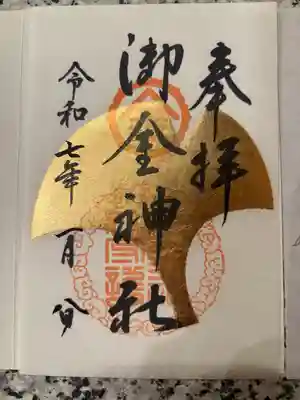 奉拝
御金神社
令和七年一月分